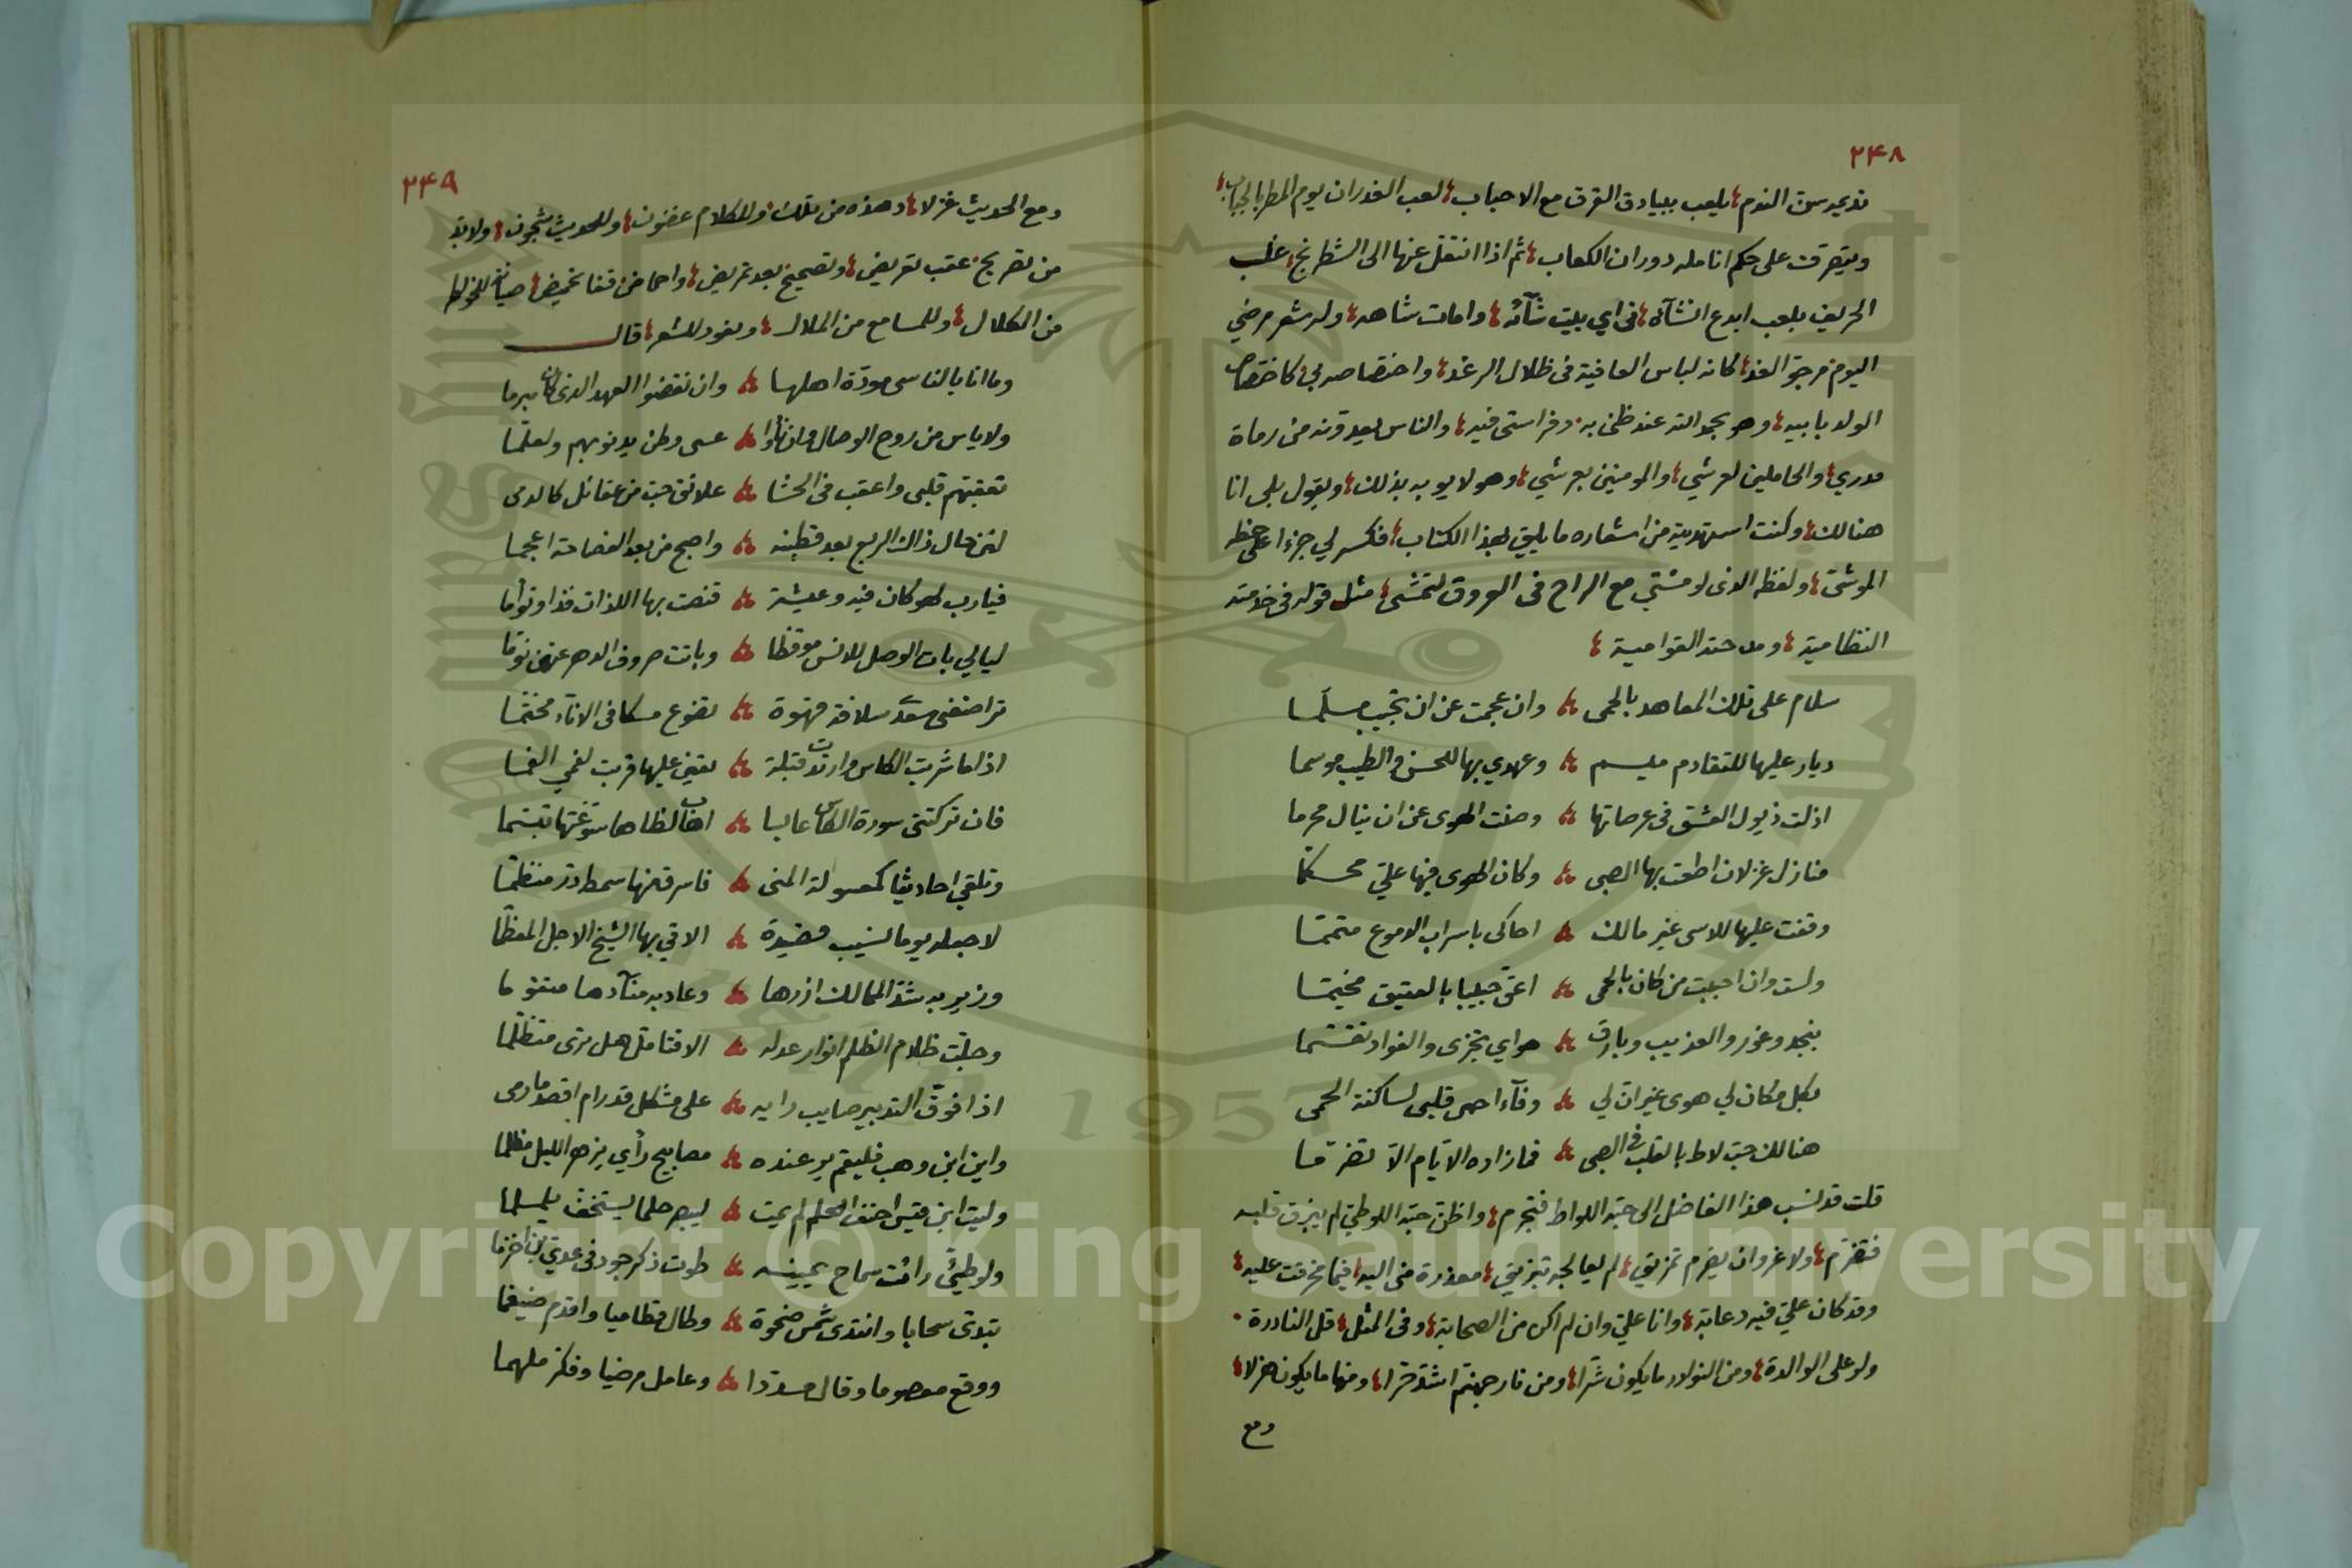 ٢٤٨
نديم سن الندم يلعب ببيادق الفرق مع الاحباب لعب الغدران يوم المطر بالحباب
ويتصرف على حكم انامله دوران الكعاب ثم اذا انتقل عنها الى الشطرنج غلب
الحريف بلعب ابدع انشآءه في اي بيت شآءه وامات شاهه وله شعر مرضي
اليوم مرجو الغد كانه لباس العافية في ظلال الرغد واختصاصه بي كاختصاص
الولد بابيه وهو بحمد الله عند ظني به وفراستي فيه والناس يعدونه من رماة
مدري والحاملين لعرشي والمومنين بعرشي وهو لا يوبه بذلك ويقول بلى انا
هنالك وكنت استهديته من اشعاره ما يليق بهذا الكتاب فكسر لي جزءا على خطه
الموشى ولفظه الذى لو مشي مع الراح فى العروق لتمشى مثل قوله فى خدمته
النظامية ومدحته القوامية
سلام على تلك المعاهد بالحمى وان عجمت عن ان تجيب مسلما
ديار عليها للتقادم ميسم وعهدي بها للحسن والطيب موسما
اذلت ذيول العشق فى عرصاتها وصنت الهوى عن ان ينال محرما
منازل غزلان اطعت بها الصبى وكان الهوى فيها علي محكما
وقفت عليها للاسى غير مالك احاكى باسراب الدموع متمما
ولست وان احببت من كان بالحمى اعق حبيبا بالعقيق مخيما
بنجد وغور والعذيب وبارق هواي تجزى والفواد تقسما
بكل مكان لي هوى غير ان لي وفآء احمى قلبى لساكنة الحمى
هنالك حب لاط بالقلب فى الصبى فما زاده الايام الا تضرما
قلت قد نسب هذا الفاضل الى حبه اللواط فتجرم واظن حبه اللوطي لم ينزق قلبه
فتضرم ولا غرو ان يضرم تمزيق لم يعالجه تبزيق معذرة منى اليه فيما مخرقت عليه
وقد كان علي فيه دعابة وانا علي وان لم اكن من الصحابة وفى المثل قل النادرة
ولو على الوالدة ومن النوادر ما يكون شرا ومن نار جهنم اشد حرا ومنها ما يكون هزلا
ومع
٢٤٩
ومع الحديث غزلا وهذه من تلك وللكلام غضون وللحديث شجون ولا بد
من تصريح عقب تعريض وتصحيح بعد تمريض واحماض قفا تحميض صيانة للخواطر
من الكلال وللمسامع من الملال ونعود للشعر قال
وما انا بالناسى مودة اهلها وان نقضوا العهد الذى كان مبرما
ولا ياس من روح الوصال وان نأوا عسى وطن يدنو بهم ولعلما
تعقبتهم قلبى واعقب فى الحشا علائق حب من عقائل كالدمى
لئن حال ذاك الربع بعد قطينه واصبح من بعد الفصاحة اعجما
فيا رب لهو كان فيه وعيشة قنصت بها اللذات فذا وتوأما
ليالي بات الوصل للانس موقظا وباتت صروف الدهر عنهن نوما
تراضعنى سعد سلافة قهوة تضوع مسكا فى الاناء مختما
اذا ما شربت الكاس وارتدت قبلة بقيئ عليها قربت لفمي الفما
فان تركتنى سورة الكاس عابسا اهاب لظاها سوغتها تبسما
وتلقي احاديثا كمعسولة المنى فاسرق منها سمط در منظما
لاجعله يوما لسيب قصيدة الاقي بها الشيخ الاجل المعظما
وزير به شد الممالك ازرها وعاد به منآدها متقوما
وجلت ظلام الظلم انوار عدله الا فتامل هل ترى متظلما
اذا فوق التدبير صايب رايه على مشكل قد رام اقصد ما رمى
واين ابن وهب فليقم ير عنده مصابيح رأي يزهر الليل مظلما
وليت ابن قيس احنف الحلم لم يمت ليبصر حلما يستخف يلملما
ولو طيئ رائت سماح يمينه طوت ذكر جود فى عدي بن اخزما
تبدى سحابا وانتدى شمس ضحوة وطال قطاميا واقدم ضيغما
ووقع معصوما وقال مسددا وعامل مرضيا وفكر ملهما